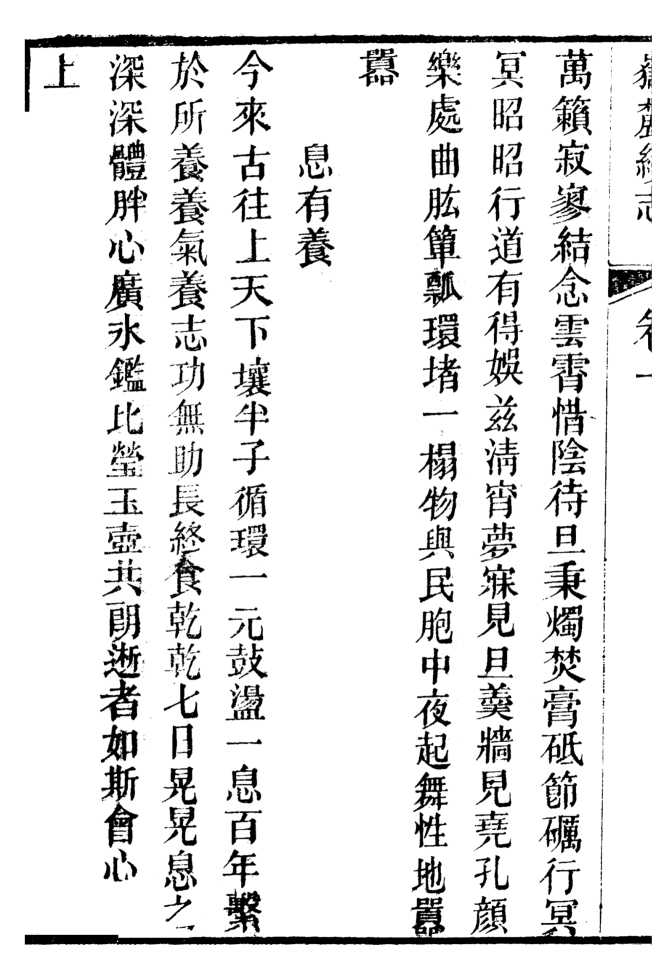 嶽麓續志 卷一
萬籟寂寥結念雲霄惜陰待旦秉燭焚膏砥節礪行冥
冥昭昭行道有得娛茲淸宵夢寐見旦羹牆見堯孔顏
樂處曲肱簞瓢環堵一榻物與民胞中夜起舞性地囂
囂
息有養
今來古往上天下壤半子循環一元鼓盪一息百年繫
於所養養氣養志功無助長終食乾乾七日晃晃息之
深深體胖心廣氷鑑比瑩玉壺共朗逝者如斯會心
上